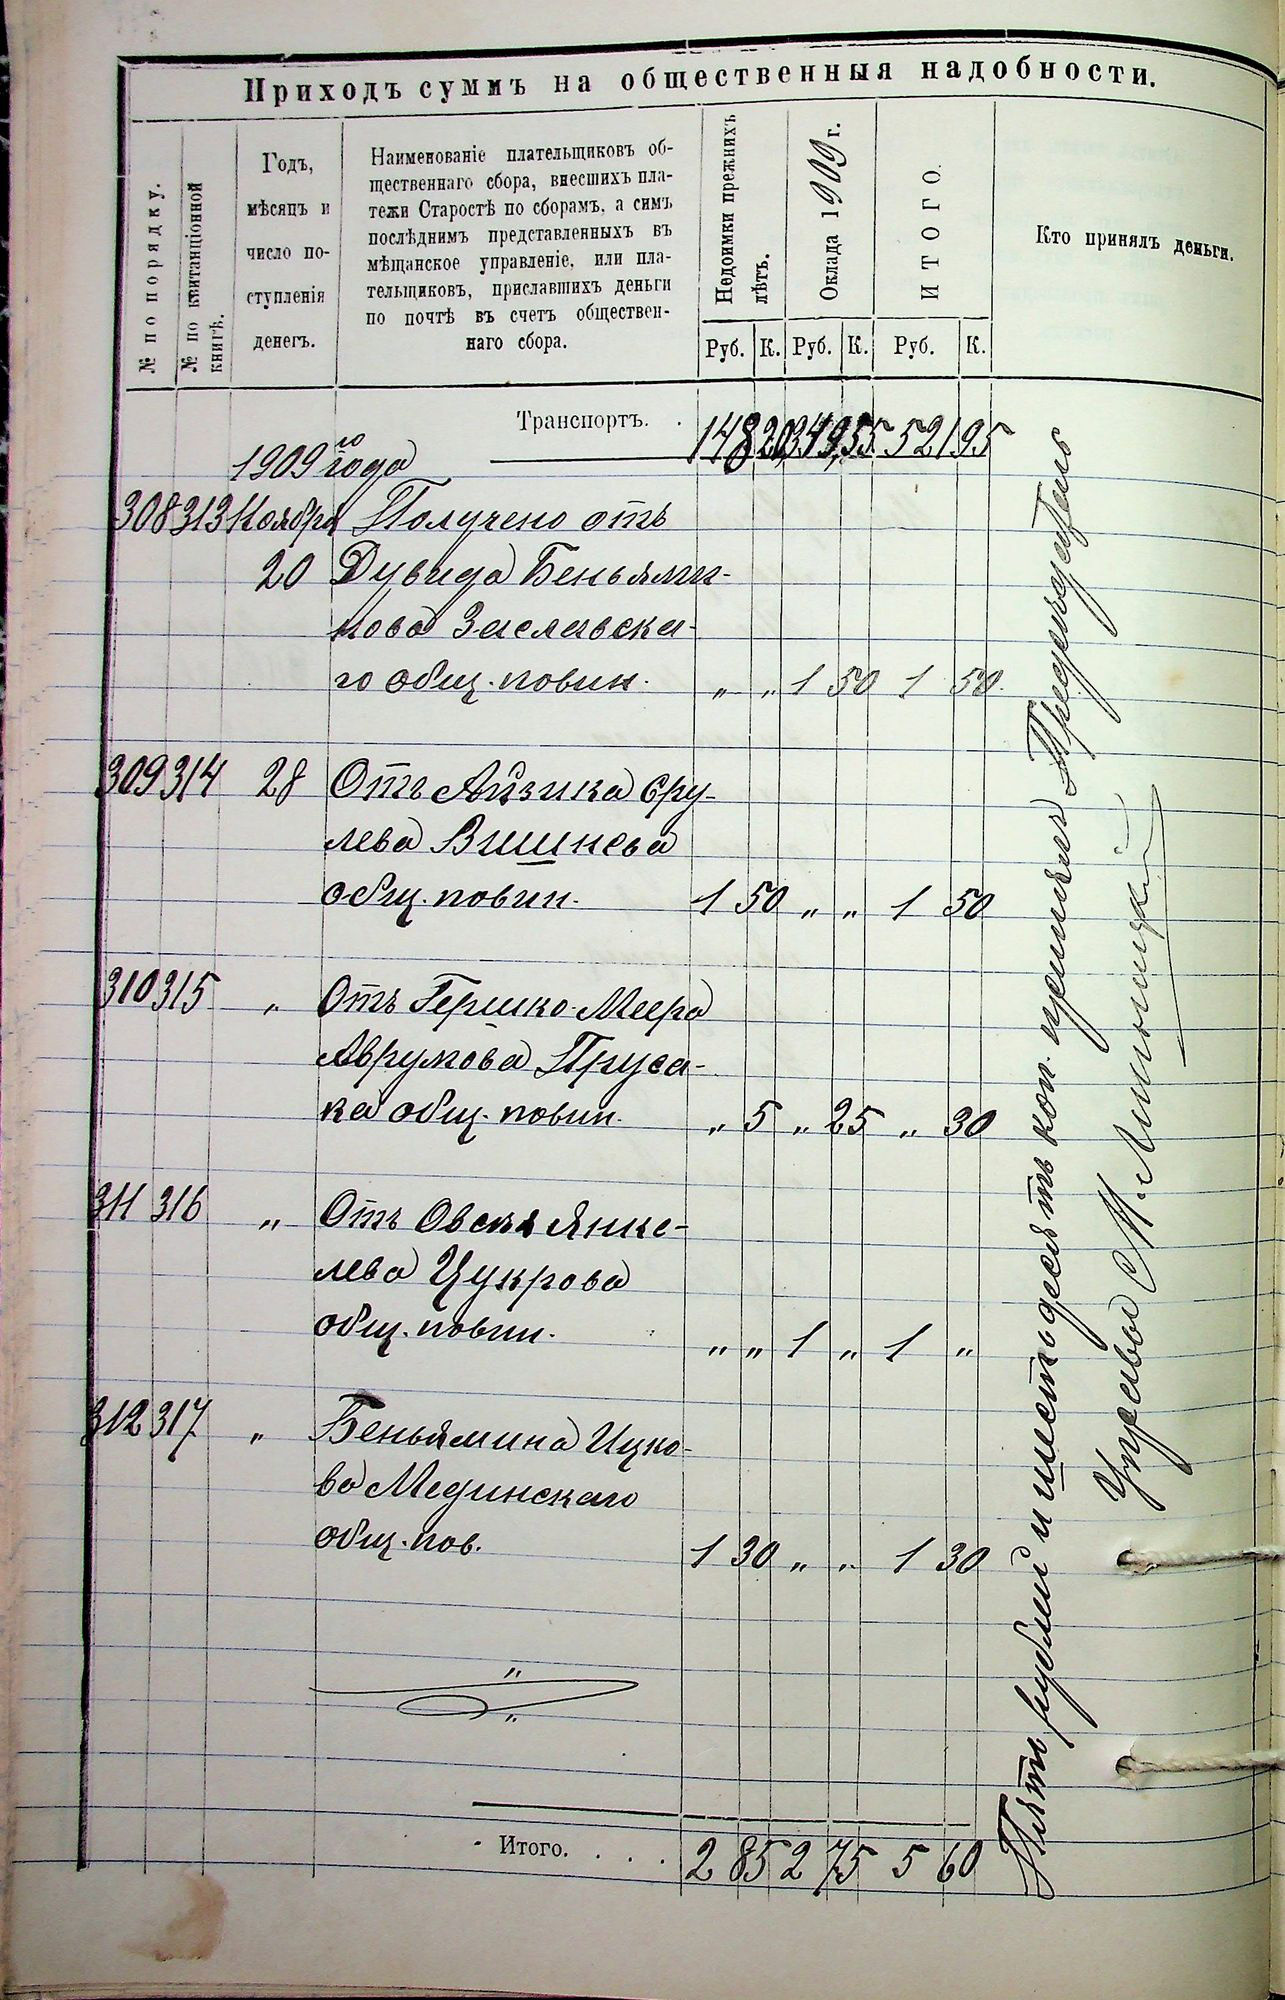 Приходъ суммъ на общественныя надобности.
№ по порядку.
№ по квитанціонной
книгѣ.
Годъ,
мѣсяцъ и
число по-
ступленія
денегъ.
Наименованіе плательщиковъ об-
щественнаго сбора, внесшихъ пла-
тежи Старостѣ по сборамъ, а симъ
послѣднимъ представленныхъ въ
мѣщанское управленіе, или пла-
тельщиковъ, приславшихъ деньги
по почтѣ въ счетъ обществен-
наго сбора.
Недоимки прежнихъ
лѣтъ.
Оклада 1909 г.
ИТОГО.
Кто принялъ деньги.
Руб. К. Руб. К. Руб. К.
Транспортъ. . 148 20 349,55 521 95
1909 го года
308 313 Ноября Получено отъ
20 Дувида Беньями-
нова Заславска-
го общ. повин. „ „ 1 50 1 50
309 314 28 Отъ Айзика Сру-
лева Вишнева
общ. повин. 1 50 „ „ 1 50
310 315 „ Отъ Гершко-Меера
Аврумова Пруса-
ка общ. повин. „ 5 „ 25 „ 30
311 316 „ Отъ Овсея Янке-
лева Цукрова
общ. повин. „ „ 1 „ 1 „
312 317 „ Беньямина Ицко-
ва Мединскаго
общ. пов. 1 30 „ „ 1 30
„
„
Итого. . . . 2 85 2 75 5 60
Пять рублей и шестьдесятъ коп. принялъ Председатель
Управы